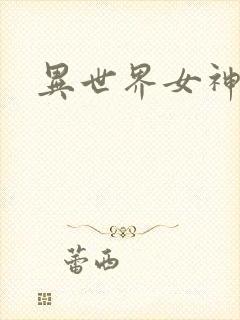 異世界女神
蕾西